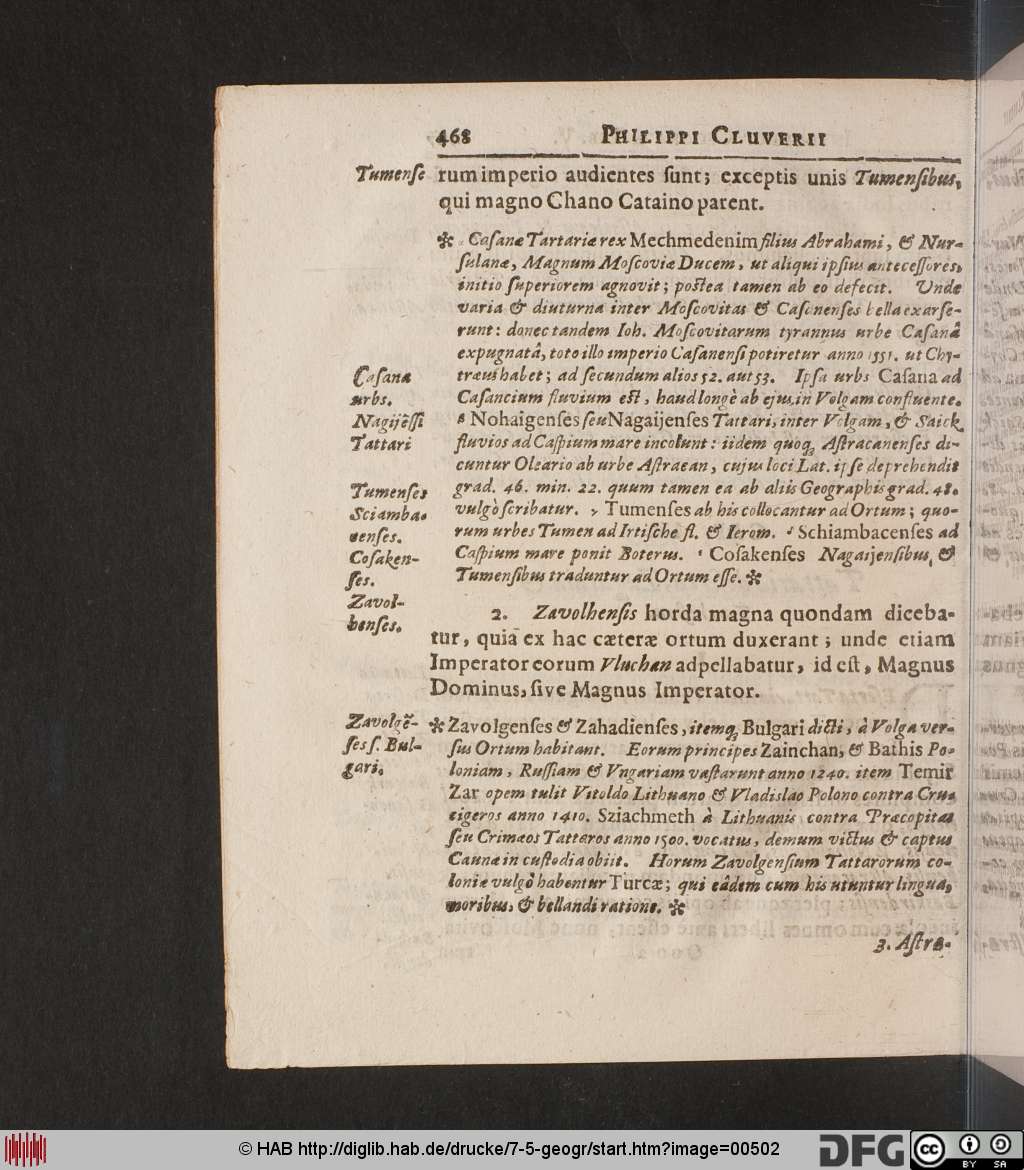 468 PHILIPPI CLUVERII
Tumense
rum imperio audientes ſunt; exceptis unis Tumenſibus,
qui magno Chano Cataino parent.
✻ Caſanæ Tartariæ rex Mechmedenim filius Abrahami, & Nur-
ſulanæ, Magnum Moſcoviæ Ducem, ut aliqui ipſius anteceſſores,
initio ſuperiorem agnovit; poſtea tamen ab eo defecit. Unde
varia & diuturna inter Moſcovitas & Caſanenſes bella exarſe-
runt: donec tandem Ioh. Moſcovitarum tyrannus urbe Caſanâ
expugnatâ, toto illo imperio Caſanenſi potiretur anno 1551. ut Chy-
træus habet; ad ſecundum alios 52. aut 53. Ipſa urbs Caſana ad
Caſancium fluvium eſt, haud longè ab ejus in Volgam confluente.
β Nohaigenſes ſeu Nagaijenſes Tattari, inter Volgam, & Saick
fluvios ad Caſpium mare incolunt: iidem quoq; Aſtracanenſes di-
cuntur Oleario ab urbe Aſtraean, cujus loci Lat. ipſe deprehendit
grad. 46. min. 22. quum tamen ea ab aliis Geographis grad. 48.
vulgò ſcribatur. γ Tumenſes ab his collocantur ad Ortum; quo-
rum urbes Tumen ad Irtiſche fl. & Ierom. δ Schiambacenſes ad
Caſpium mare ponit Boterus. ε Coſakenſes Nagaijenſibus, &
Tumenſibus traduntur ad Ortum eſſe. ✻
Caſana
urbs.
Nagijeſſi
Tattari
Tumenſes
Sciamba-
venſes.
Coſaken-
ſes.
Zavol-
henſes.
2. Zavolhenſis horda magna quondam diceba-
tur, quia ex hac cæteræ ortum duxerant; unde etiam
Imperator eorum Vluchan adpellabatur, id eſt, Magnus
Dominus, ſive Magnus Imperator.
Zavolgẽ-
ſes ſ. Bul-
gari.
✻ Zavolgenſes & Zahadienſes, itemq; Bulgari dicti, à Volga ver-
ſus Ortum habitant. Eorum principes Zainchan, & Bathis Po-
loniam, Ruſſiam & Vngariam vaſtarunt anno 1240. item Temir
Zar opem tulit Vitoldo Lithuano & Vladislao Polono contra Cru-
cigeros anno 1410. Sziachmeth à Lithuanis contra Præcopitas
ſeu Crimæos Tattaros anno 1500. vocatus, demum victus & captus
Caunæ in cuſtodia obiit. Horum Zavolgenſium Tattarorum co-
loniæ vulgò habentur Turcæ; qui eâdem cum his utuntur lingua,
moribus, & bellandi ratione. ✻
3. Aſtra-
© HAB http://diglib.hab.de/drucke/7-5-geogr/start.htm?image=00502
DFG
cc BY SA